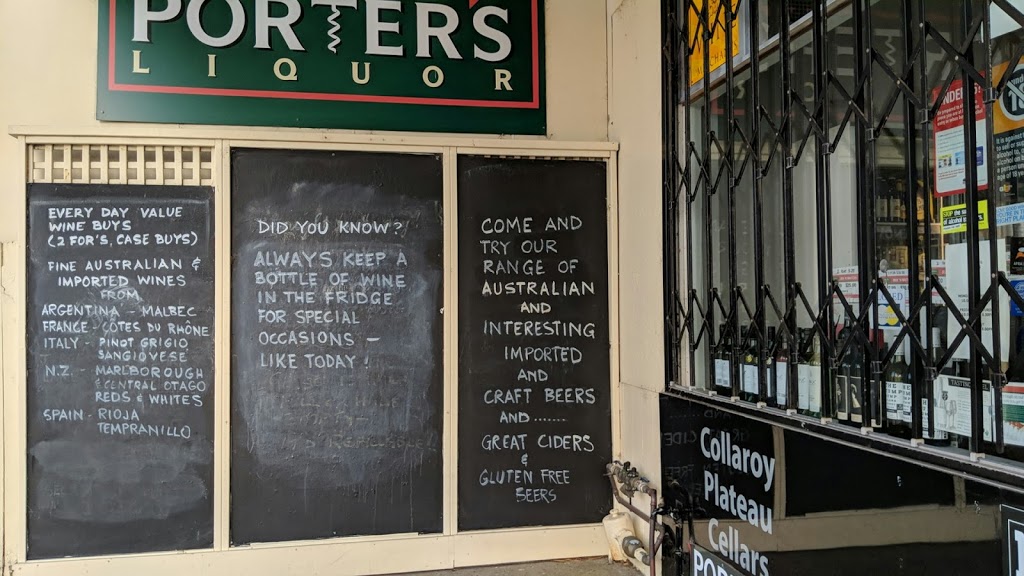 PORTER'S
LIQUOR
EVERY DAY VALUE
WINE BUYS
(2 FOR'S, CASE BUYS)
FINE AUSTRALIAN &
IMPORTED WINES
FROM
ARGENTINA - MALBEC
FRANCE - CÔTES DU RHÔNE
ITALY - PINOT GRIGIO
SANGIOVESE
N.Z. - MARLBOROUGH
& CENTRAL OTAGO
REDS & WHITES
SPAIN - RIOJA
TEMPRANILLO
DID YOU KNOW?
ALWAYS KEEP A
BOTTLE OF WINE
IN THE FRIDGE
FOR SPECIAL
OCCASIONS -
LIKE TODAY!
COME AND
TRY OUR
RANGE OF
AUSTRALIAN
AND
INTERESTING
IMPORTED
AND
CRAFT BEERS
AND.......
GREAT CIDERS
&
GLUTEN FREE
BEERS
Collaroy
Plateau
Cellars